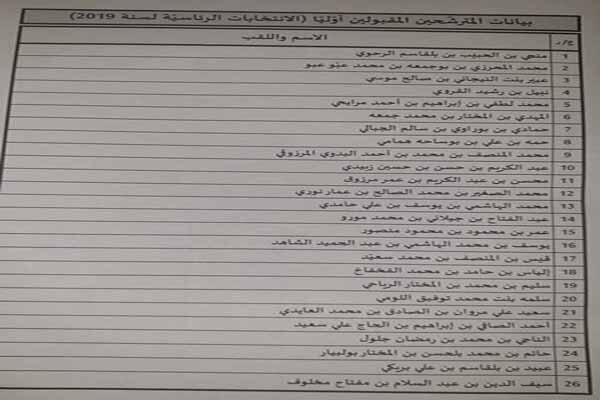 بيانات المترشحين المقبولين أوّليّا (الانتخابات الرئاسيّة لسنة 2019)
ع/ر الاسم واللقب
1 منجي بن الحبيب بن بلقاسم الرحوي
2 محمد المحرزي بن بوجمعه بن محمد عبّو عبو
3 عبير بنت التيجاني بن صالح موسي
4 نبيل بن رشيد القروي
5 محمد لطفي بن إبراهيم بن أحمد مرايحي
6 المهدي بن المختار بن محمد جمعه
7 حمادي بن بوراوي بن سالم الجبالي
8 حمه بن علي بن بوساحه همامي
9 محمد المنصف بن محمد بن أحمد البدوي المرزوقي
10 عبد الكريم بن حسن بن حسين زبيدي
11 محسن بن عبد الكريم بن عمر مرزوق
12 محمد الصغير بن محمد الصالح بن عمار نوري
13 محمد الهاشمي بن يوسف بن علي حامدي
14 عبد الفتاح بن جيلاني بن محمد مورو
15 عمر بن محمود بن محمود منصور
16 يوسف بن محمد الهاشمي بن عبد الحميد الشاهد
17 قيس بن المنصف بن محمد سعيّد
18 إلياس بن حامد بن محمد الفخفاخ
19 سليم بن محمد بن المختار الرياحي
20 سلمه بنت محمد توفيق اللومي
21 سعيد علي مروان بن الصادق بن محمد العايدي
22 أحمد الصافي بن إبراهيم بن الحاج علي سعيد
23 الناجي بن محمد بن رمضان جلول
24 حاتم بن محمد بلحسن بن المختار بولبيار
25 عبيد بن بلقاسم بن علي بريكي
26 سيف الدين بن عبد السلام بن مفتاح مخلوف